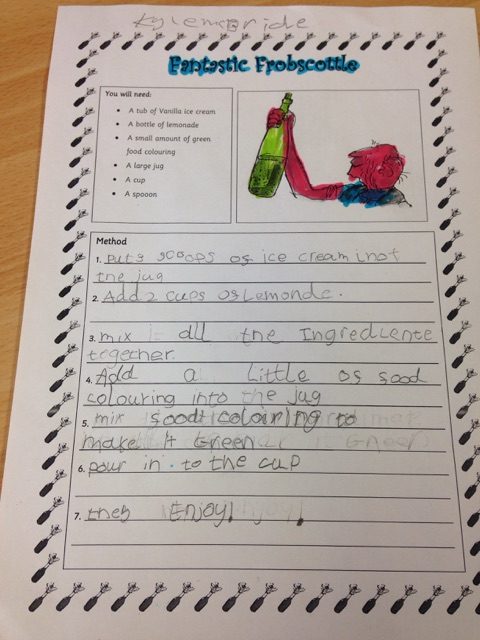 Kylemcbride
Fantastic Frobscottle
You will need:
• A tub of Vanilla ice cream
• A bottle of lemonade
• A small amount of green
food colouring
• A large jug
• A cup
• A spooon
Method
1. put 3 scoops os ice cream inot
the jug
2. Add 2 cups os Lemonde.
3. mix all the Ingrediente
together.
4. Add a little os sood
colouring into the jug
5. mix sood colouring to
make it Green
6. pour in to the cup
7. then Enjoy!